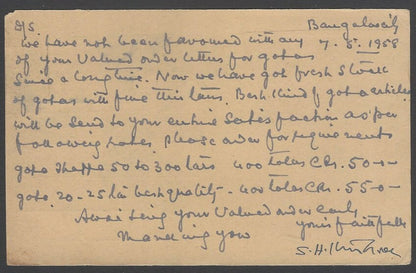 D/S. Bangalacity
We have not been favoured with any 7. 5. 1958
of your Valued order letters for gotas
Since a long time. Now we have got fresh Stock
of gotas with fine this time. Best Kind of gota articles
will be Send to your entire Satisfaction as per
following rates. Please order for requirements
gota Thappe 50 to 300 tars 400 tolas @Rs. 50-0-0
gota. 20-25 tar best quality - 400 tolas @Rs. 55-0-
Awaiting your Valued order early
Thanking you yours faithfully
S. H.